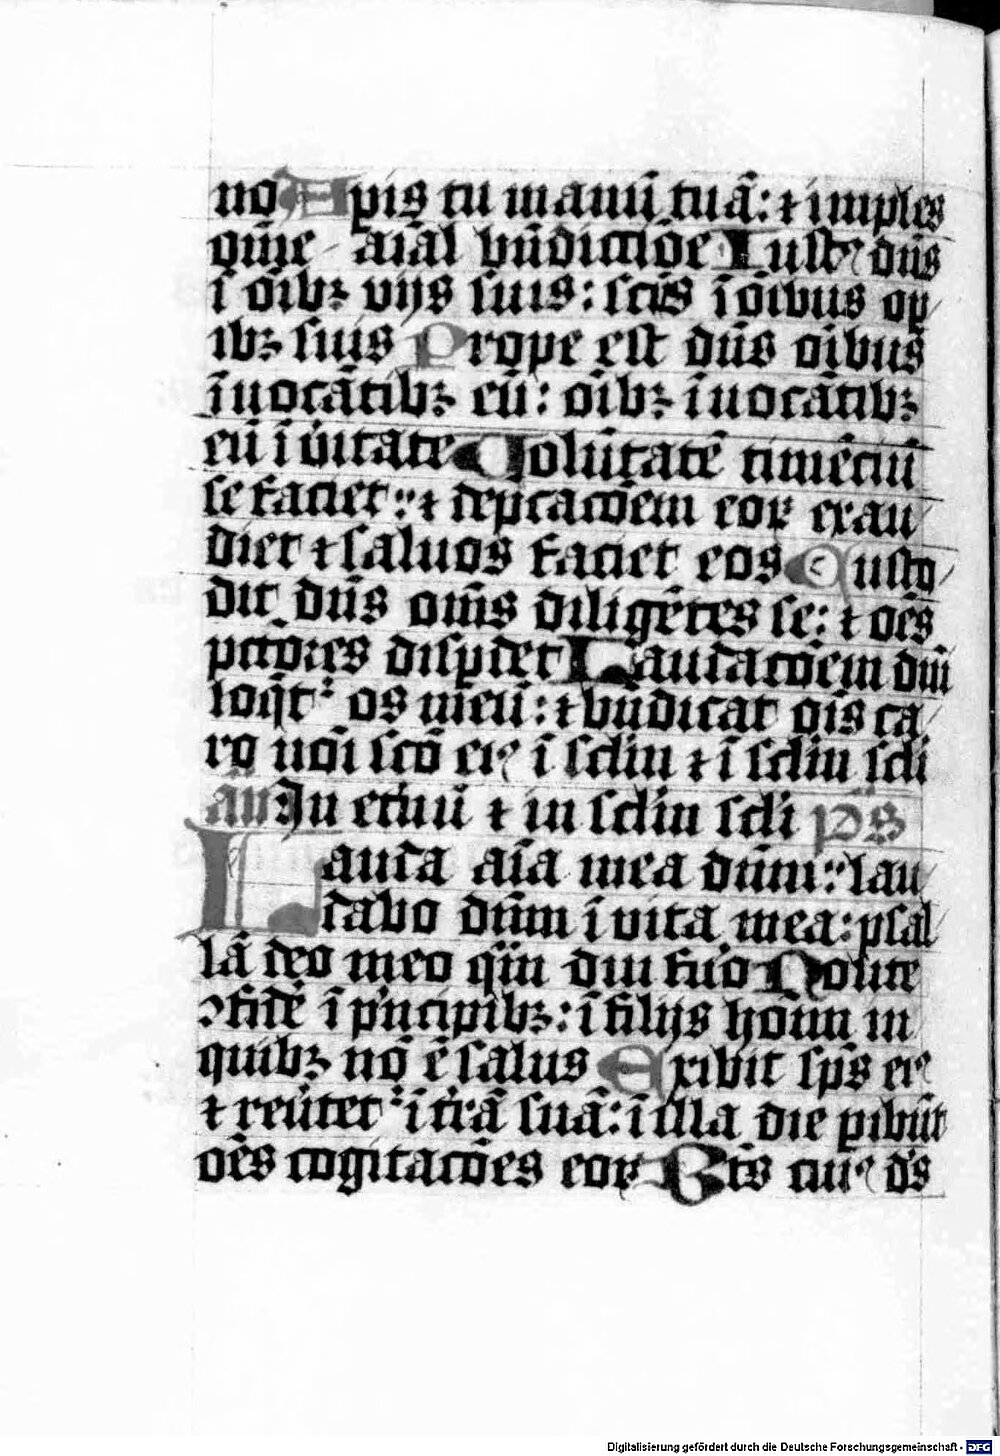 no Apis tu manū tuā: ⁊ imples
om̄e aīal bn̄dicciōe Iustꝰ dn̄s
ī oībꝫ vijs suis: scūs ī oībus op
ibꝫ suis Prope est dn̄s oībus
īuocātibꝫ eū: oībꝫ īuocātibꝫ
eū ī ūitate Volūtatē timēciū
se faciet: ⁊ dep̄cacōem eoꝝ exau
diet ⁊ saluos faciet eos Custo
dit dn̄s om̄s diligētes se: ⁊ oēs
pctōres disp̄det Laudacōem dn̄i
loq̄t᷑ os meū: ⁊ bn̄dicat oīs ca
ro noī scō eiꝰ ī sclm̄ ⁊ ī sclm̄ scli
an̄ In etnū ⁊ in sclm̄ scli p̄s
Lauda aīa mea dn̄m: lau
dabo dn̄m ī vita mea: psal
lā deo meo qm̄ diu fuo Nolite
ꝯfidē ī pⁱncipibꝫ: ī filijs hoīm in
quibꝫ nō ē salus Exibit sp̄s eiꝰ
⁊ reūtet᷑ ī tr̄ā suā: ī illa die pibūt
oēs cogitacōes eoꝝ Btūs cuiꝰ ds̄
Digitalisierung gefördert durch die Deutsche Forschungsgemeinschaft - DFG